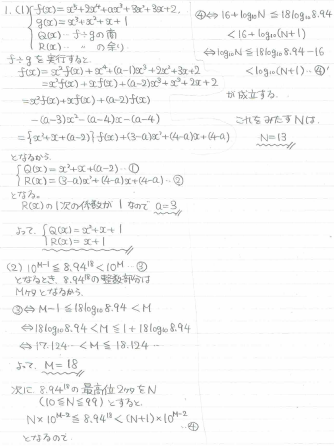 1. (1) f(x)=x⁵+2x⁴+ax³+3x²+3x+2,
g(x)=x³+x²+x+1
Q(x)… f÷gの商
R(x)… 〃 の余り
f÷gを実行すると
f(x)=x²f(x)+x⁴+(a-1)x³+2x²+3x+2
=x²f(x)+xf(x)+(a-2)x³+x²+2x+2
=x²f(x)+xf(x)+(a-2)f(x)
-(a-3)x²-(a-4)x-(a-4)
={x²+x+(a-2)}f(x)+(3-a)x²+(4-a)x+(4-a)
となるから
Q(x)=x²+x+(a-2)…①
R(x)=(3-a)x²+(4-a)x+(4-a)…②
となる。
R(x)の1次の係数が1なので a=3
よって Q(x)=x²+x+1
R(x)=x+1
(2) 10^{M-1}≦8.94¹⁸<10^M…③
となるとき、8.94¹⁸の整数部分は
Mケタとなるから、
③⇔M-1≦18log₁₀8.94<M
⇔18log₁₀8.94<M≦1+18log₁₀8.94
⇔17.124…<M≦18.124…
よって、M=18
次に 8.94¹⁸の最高位2ケタをN
(10≦N≦99)とすると、
N×10^{M-2}≦8.94¹⁸<(N+1)×10^{M-2}
…④
となるので
④⇔16+log₁₀N≦18log₁₀8.94
<16+log₁₀(N+1)
⇔log₁₀N≦18log₁₀8.94-16
<log₁₀(N+1)…④'
が成立する.
これをみたすNは、
N=13